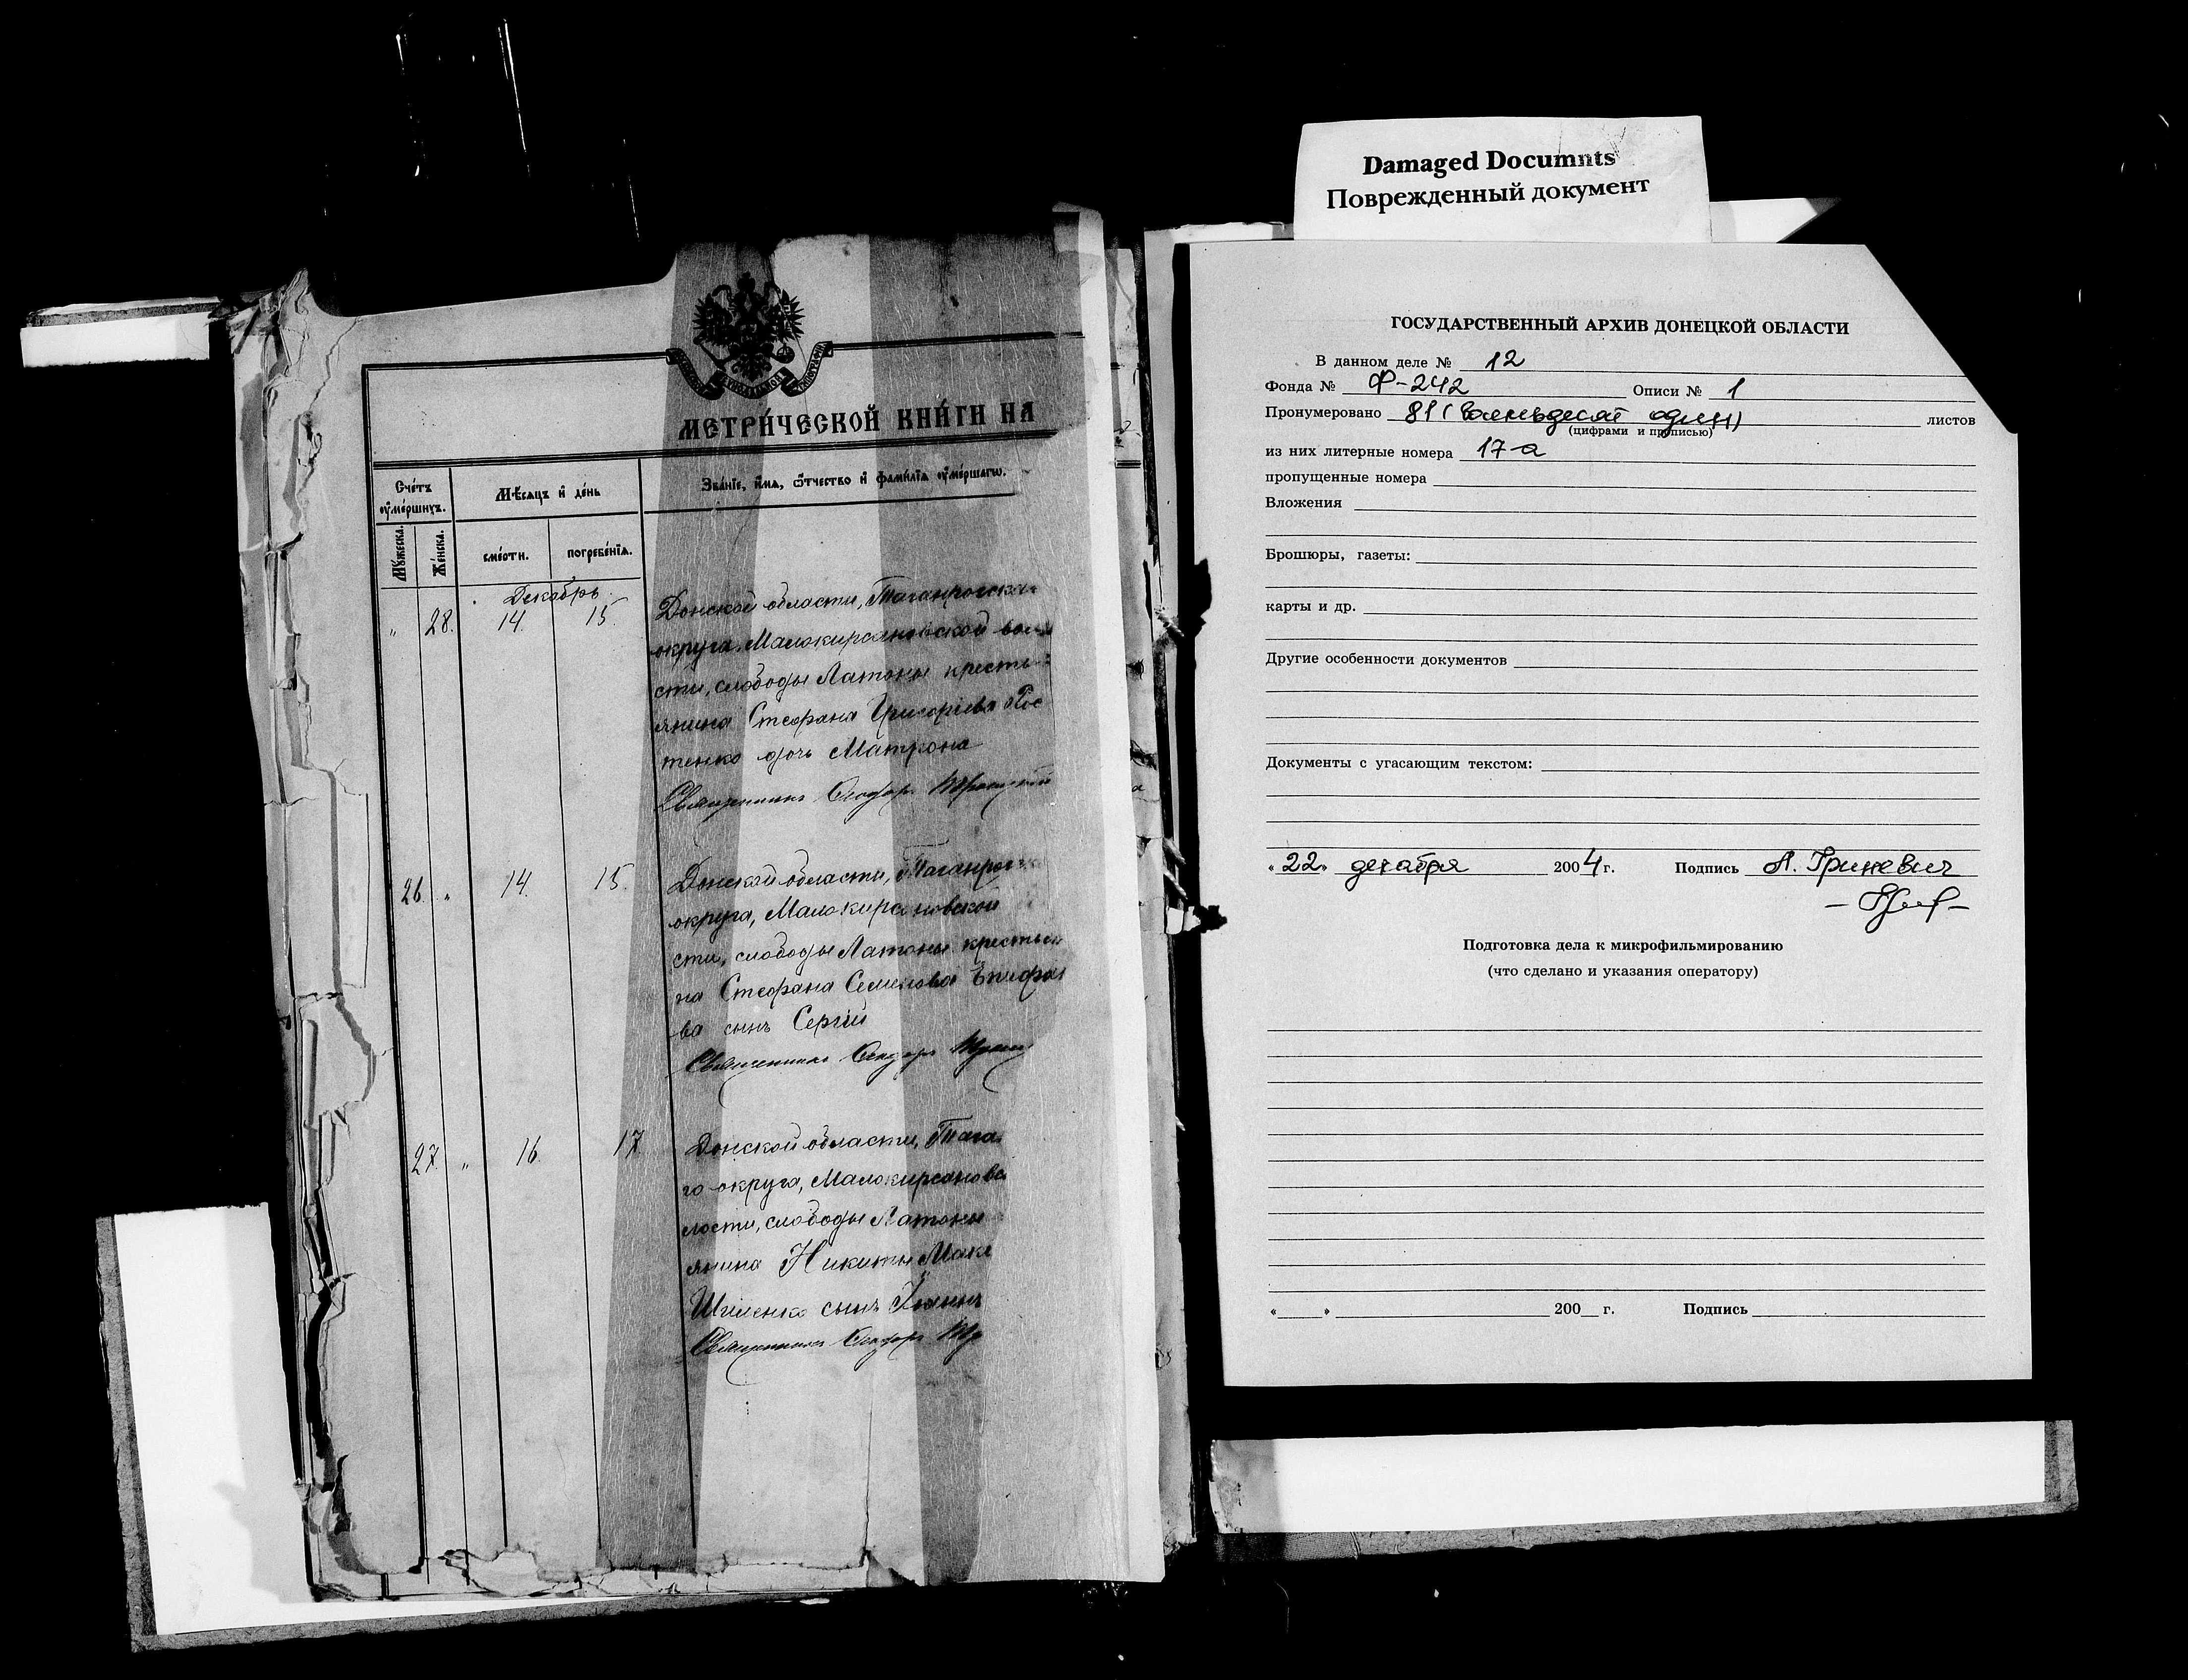 МЕТРИ́ЧЕСКОЙ КНИ́ГИ НА
Сче́тъ ᲂумє́ршихъ.
Мѣ́сяцъ и де́нь
Зва́нїе, и́мя, ѻ́тчество и фами́лїя ᲂумє́ршагѡ.
Мꙋ́жеска.
Же́нска.
сме́рти.
погребе́нїя.
Декабрь
" 28. 14. 15.
Донской области, Таганрогска
округа, Малокирсановской вол
сти, слободы Латоны кресть
янина Стефана Григоріева Кос
тенко дочь Матрона
Священникъ Ѳеодоръ
26. " 14. 15.
Донской области, Таганрог
округа, Малокирсановской
сти, слободы Латоны крестья
на Стефана Семенова Епифа
ва сынъ Сергій
Священникъ Ѳеодоръ
27. " 16. 17.
Донской области, Тага
го округа, Малокирсановс
лости, слободы Латоны
янина Никиты Мак
сынъ Іоаннъ
Священникъ Ѳеодоръ
Damaged Documnts
Поврежденный документ
ГОСУДАРСТВЕННЫЙ АРХИВ ДОНЕЦКОЙ ОБЛАСТИ
В данном деле № 12
Фонда № Ф-242 Описи № 1
Пронумеровано 81 (восемьдесят один) листов
(цифрами и прописью)
из них литерные номера 17-а
пропущенные номера
Вложения
Брошюры, газеты:
карты и др.
Другие особенности документов
Документы с угасающим текстом:
«22» декабря 2004 г. Подпись А. Гриневич
Подготовка дела к микрофильмированию
(что сделано и указания оператору)
« » 200 г. Подпись